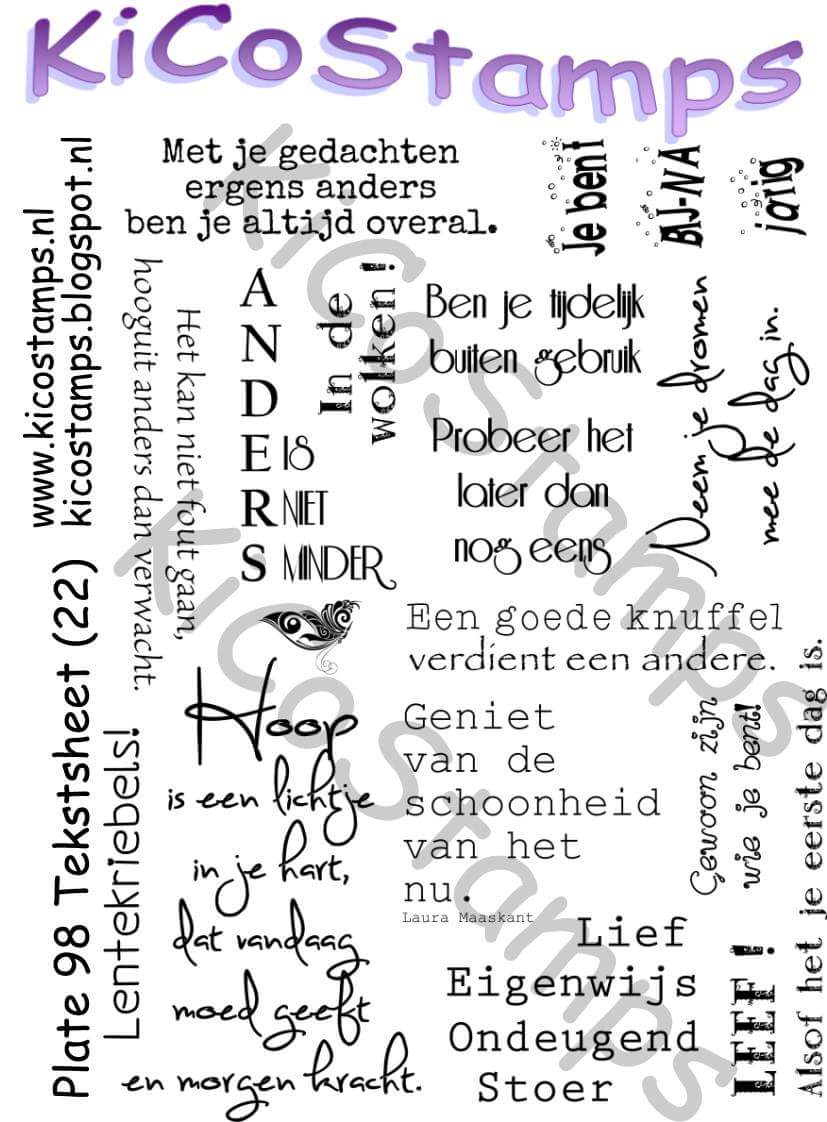 KiCoStamps
www.kicostamps.nl
kicostamps.blogspot.nl
Plate 98 Tekstsheet (22)
Met je gedachten
ergens anders
ben je altijd overal.
Je bent
BIJ-NA
jarig
Het kan niet fout gaan,
hooguit anders dan verwacht.
A
N
D
E IS
R NIET
S MINDER
In de
wolken!
Ben je tijdelijk
buiten gebruik
Probeer het
later dan
nog eens
Neem je dromen
mee de dag in.
Een goede knuffel
verdient een andere.
Lentekriebels!
Hoop
is een lichtje
in je hart,
dat vandaag
moed geeft
en morgen kracht.
Geniet
van de
schoonheid
van het
nu.
Laura Maaskant
Gewoon zijn
wie je bent!
Lief
Eigenwijs
Ondeugend
Stoer
LEEF!
Alsof het je eerste dag is.
KiCoStamps
KiCoStamps